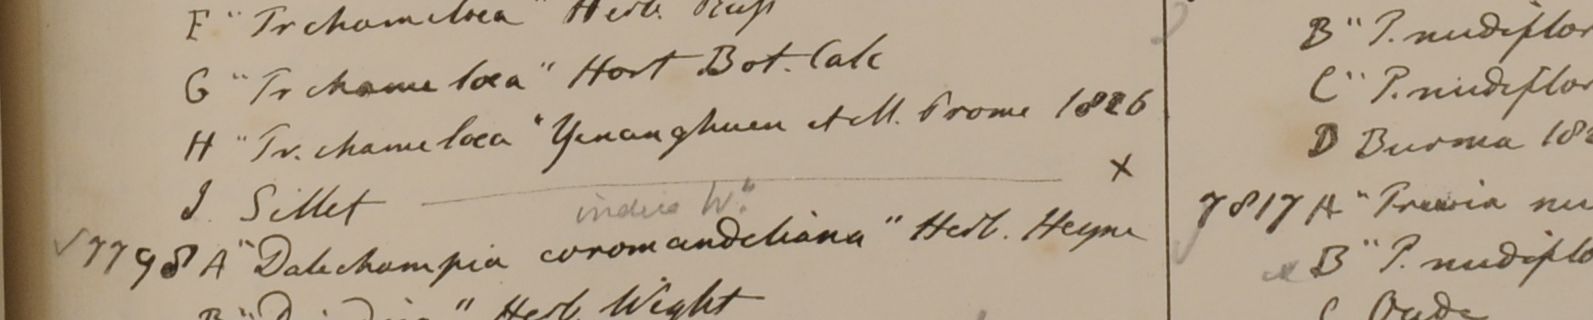 F "Tr chamelaea" Herb. Russ
G "Tr chamelaea" Hort Bot. Calc
H "Tr. chamelaea" Yenanghuen et M. Prome 1826
I. Sillet ——— x
indica W."
√7798 A "Dalechampia coromandeliana" Herb. Heyne
B " Herb. Wight
B "P. nudiflor
C "P. nudiflor
D Burma 182
7817 A "Trewia nu
B "P. nudiflo
C Oude